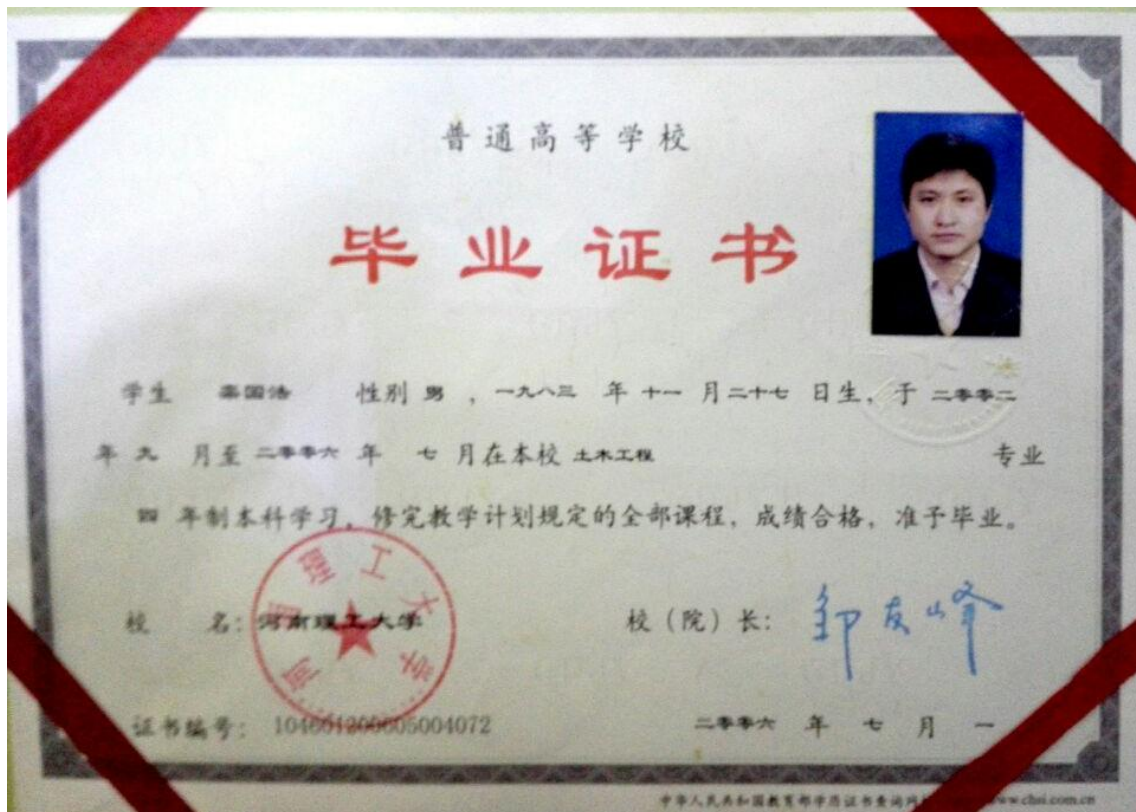 普通高等学校
毕业证书
学生 国法 性别 男 ，一九八三 年 十一 月二十七 日生，于 二零零二
年 九 月至 二零零六 年 七 月在本校 土木工程 专业
四 年制本科学习，修完教学计划规定的全部课程，成绩合格，准予毕业。
校 名：河南理工大学
河南理工大学
校（院）长：邹友峰
证书编号：104601200605004072
二零零六 年 七 月 一
中华人民共和国教育部学历证书查询网 www.chsi.com.cn